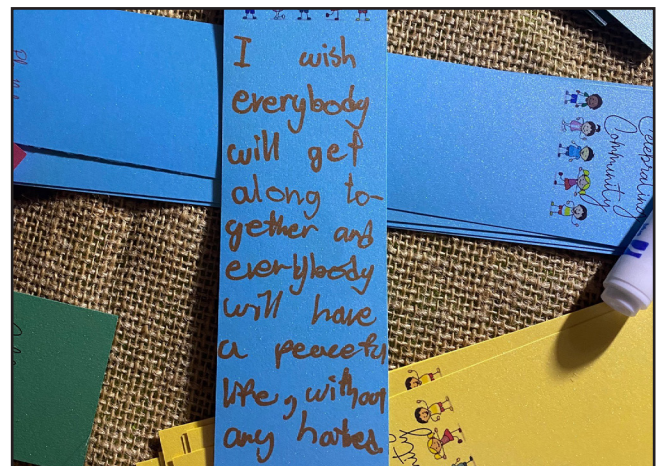 I wish
everybody
will get
along to-
gether and
everybody
will have
a peaceful
life, without
any hatred.
Celebrating
Community